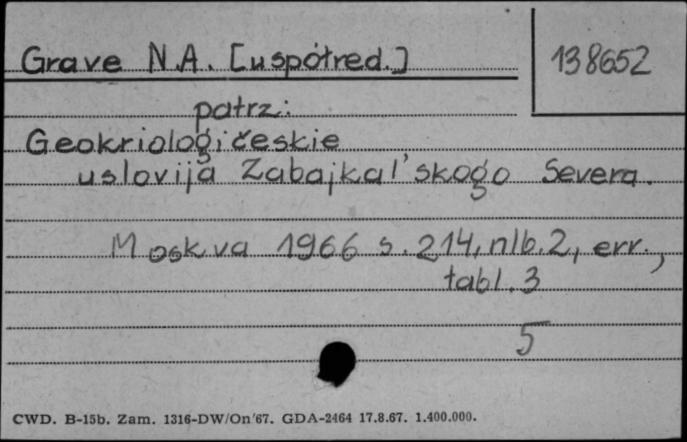 Grave N.A. [uspółred.]
138652
patrz:
Geokriologičeskie
uslovija Zabajkal'skogo Severa.
Moskva 1966 s. 214, nlb. 2, err.,
tabl. 3
5
CWD. B-15b. Zam. 1316-DW/On/67. GDA-2464 17.8.67. 1.400.000.